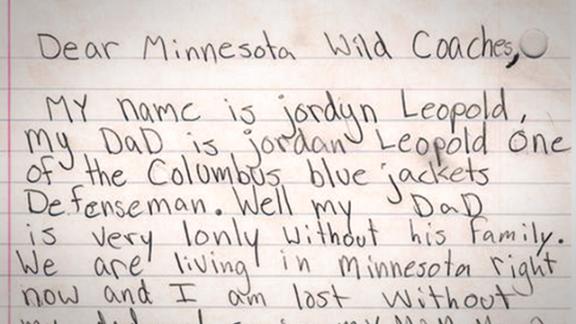 Dear Minnesota Wild Coaches,
MY name is jordyn Leopold,
my DaD is jordan Leopold one
of the Columbus blue jackets
Defenseman. Well my DaD
is very lonly without his family.
We are living in minnesota right
now and I am lost without